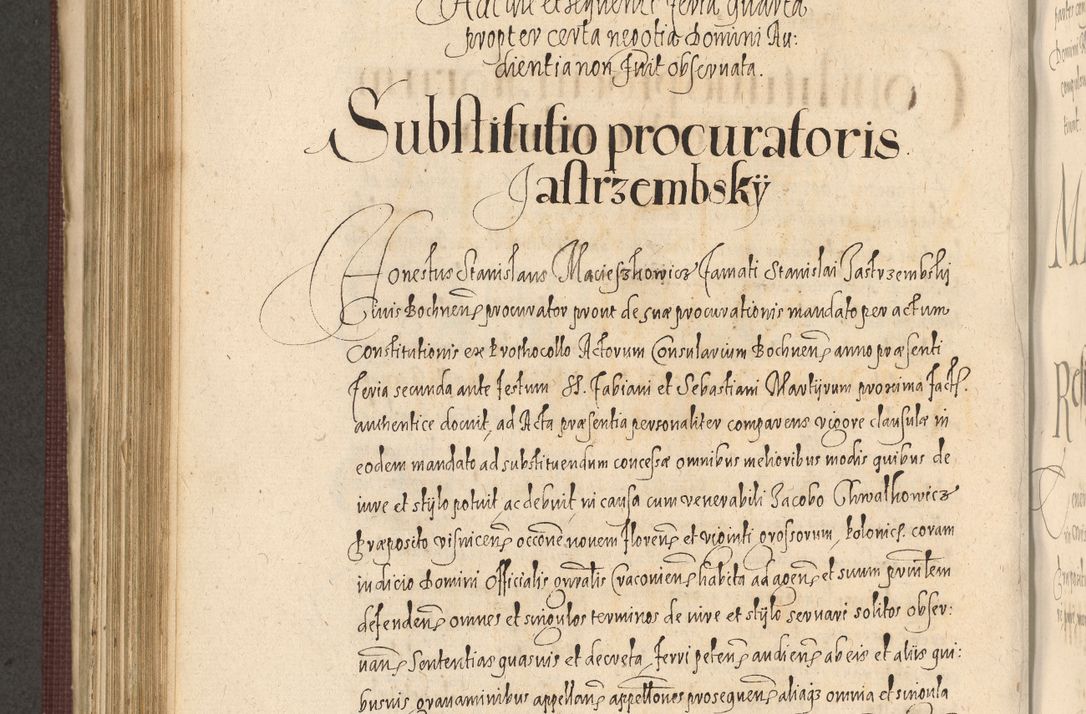 Hac die et sequenti feria quarta
propter certa negotia Domini Au:
dientia non fuit observata.
Substitutio procuratoris
Jastrzembskÿ
Honestus Stanislaus Macieszkowicz famati Stanislai Jastrzembskij
Civis Bochnen̄ procurator prout de suæ procurationis mandato per actum
constitutionis ex Prothocollo Actorum Consularium Bochnen̄ anno præsenti
feria secunda ante festum SS. Fabiani et Sebastiani Martÿrum proxima fact.
authentice docuit, ad Acta præsentia personaliter comparens vigore clausulæ in
eodem mandato ad substituendum concessæ omnibus melioribus modis quibus de
iure et stÿlo potuit, ac debuit, in causa cum venerabili Jacobo Chwalkowicz
Præposito visnicen̄ occōne novem floren̄ et viginti grossorum, Polonicł. coram
iudicio Domini Officialis gnralis Cracovien̄ habita ad agen̄ et suum prnⁿtem
defenden̄ omnes et singulos terminos de iure et stÿlo servari solitos obser:
uan̄ Sententias quasuis et decreta, ferri peten̄ audien̄ ab eis et aliis qui:
busvis, gravaminibus appellan̄ appellōnes prosequen̄ aliaq̃ omnia et singula